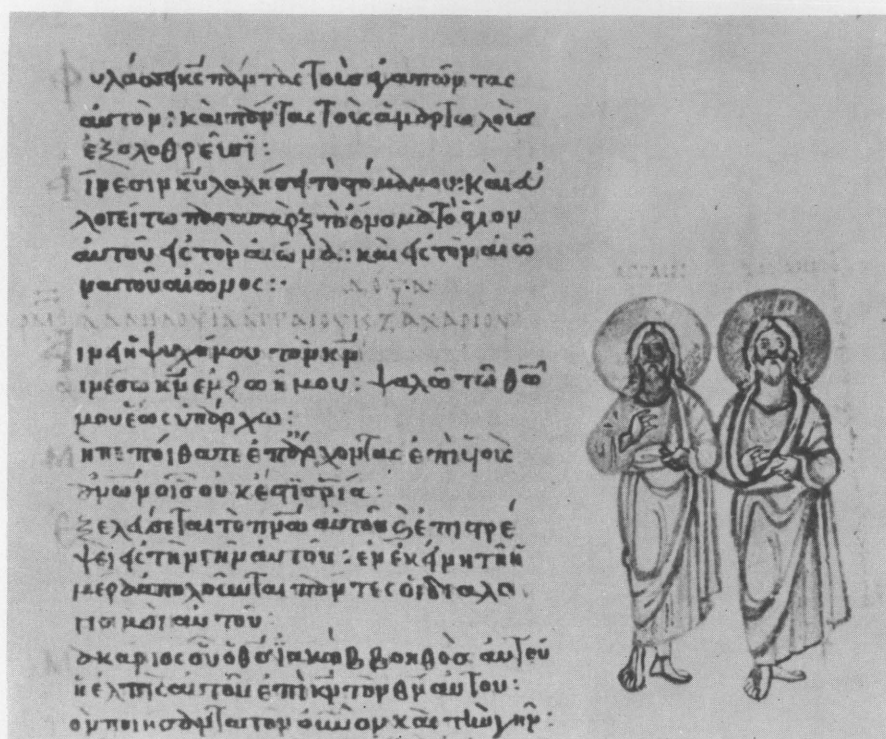 υλάσσει κ̅ς̅ πάντας τοὺς ἀγαπῶντας
αὐτὸν: καὶ πάντας τοὺς ἁμαρτωλοὺς
ἐξολοθρεύσει:
ΐνεσιν κ̅υ̅ λαλήσει τὸ στόμα μου: καὶ εὐ
λογείτω πᾶσα σὰρξ τὸ ὄνομα τὸ ἅγιον
αὐτοῦ εἰς τὸν αἰῶνα: καὶ εἰς τὸν αἰῶ
να τοῦ αἰῶνος:
ΑΛΛΗΛΟΥΪΑ ΑΓΓΑΙΟΥ Κ ΖΑΧΑΡΙΟΥ
ινει ἡ ψυχή μου τὸν κ̅ν̅
ινέσω κ̅ν̅ ἐν ζωῆ μου: ψαλῶ τῶ θ̅ω̅
μου ἕως ὑπάρχω:
ὴ πεποίθατε ἐπ ἄρχοντας ἐπὶ υἱοὺς
ἀ̅ν̅ω̅ν̅ οἷς οὐκ ἔστι σ̅ρ̅ία:
ξελεύσεται τὸ π̅ν̅α̅ αὐτοῦ ϗ ἐπιστρέ
ψει εἰς τὴν γῆν αὐτοῦ: ἐν ἐκείνη τῆ ἡ
μέρα ἀπολοῦνται πάντες οἱ διαλο
γισμοὶ αὐτοῦ
ακάριος οὗ ὁ θ̅ς̅ ἰακὼβ βοηθὸς αὐτοῦ
ἡ ἐλπὶς αὐτοῦ ἐπὶ κ̅ν̅ τὸν θ̅ν̅ αὐτοῦ:
ὸν ποιήσαντα τὸν ο̅υ̅ν̅ον καὶ τὴν γῆν: